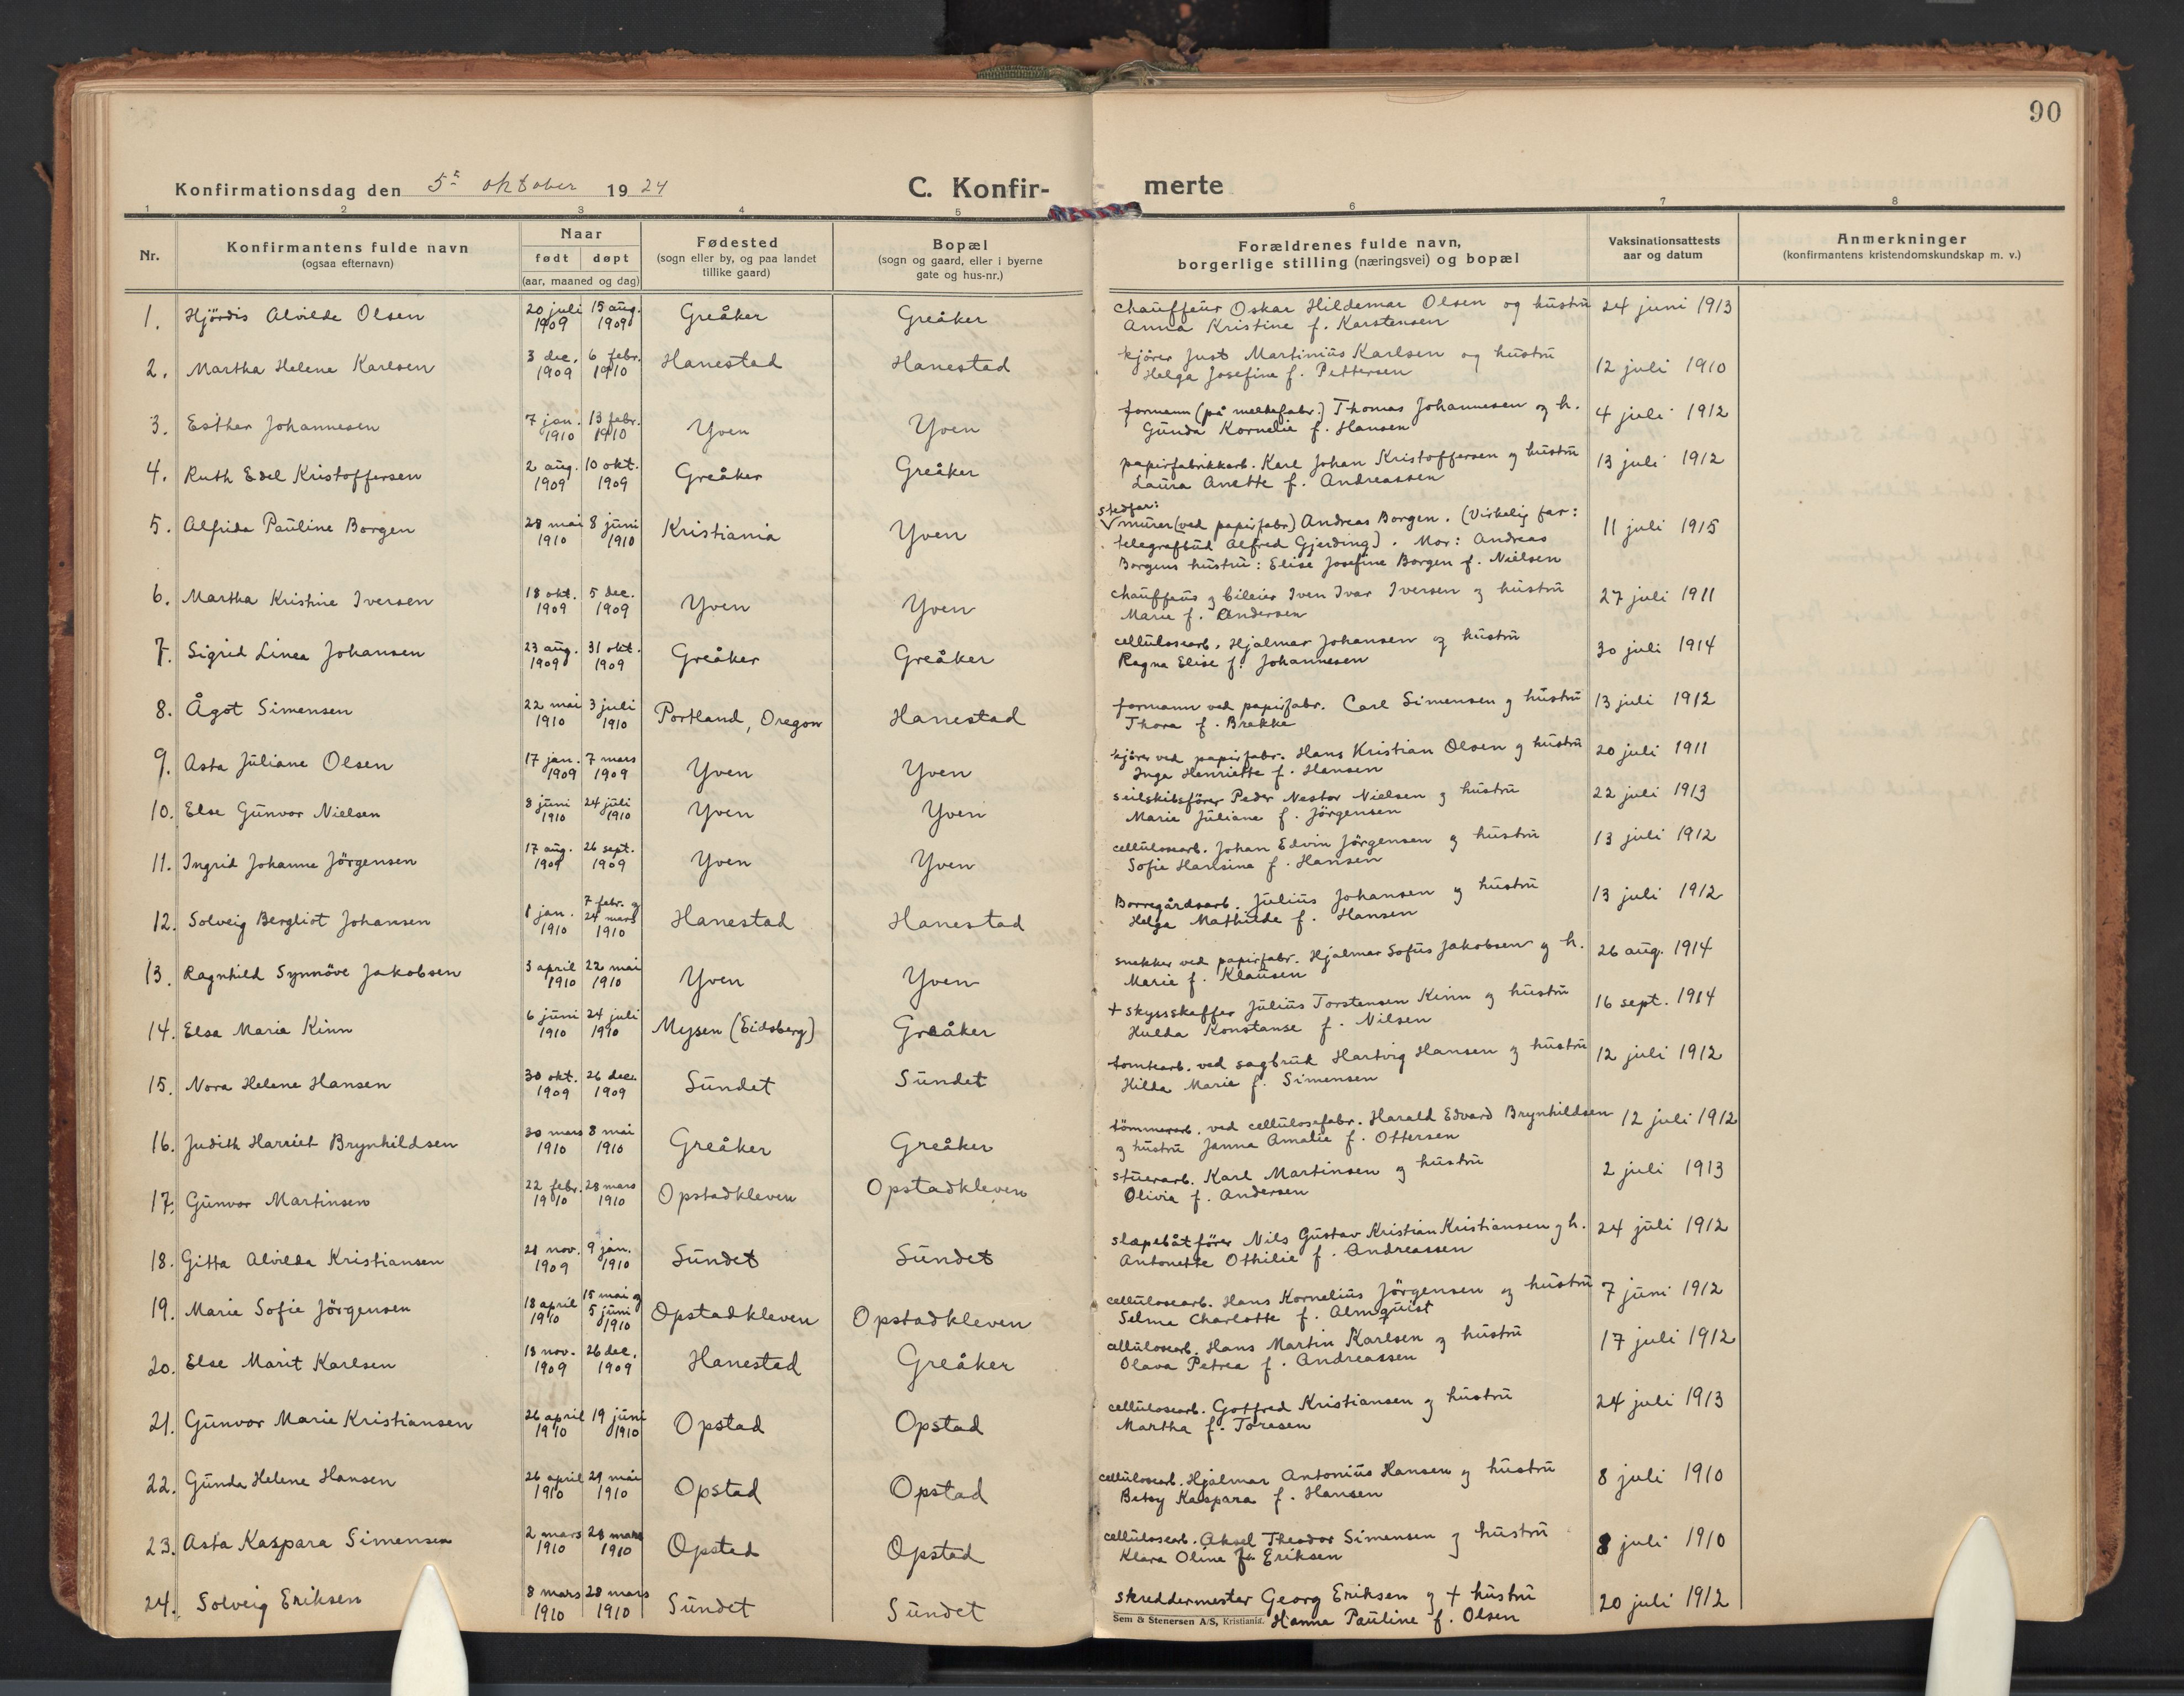 90
Konfirmationsdag den 5te oktober 1924 C. Konfirmerte
1 2 3 4 5 6 7 8
Nr. Konfirmantens fulde navn (ogsaa efternavn) Naar født døpt (aar, maaned og dag) Fødested (sogn eller by, og paa landet tillike gaard) Bopæl (sogn og gaard, eller i byerne gate og hus-nr.) Forældrenes fulde navn, borgerlige stilling (næringsvei) og bopæl Vaksinationsattests aar og datum Anmerkninger (konfirmantens kristendomskundskap m. v.)
1. Hjördis Alvilde Olsen 20 juli 1909 15 aug. 1909 Greåker Greåker chauffeur Oskar Hildemar Olsen og hustru Anna Kristine f. Karstensen 24 juni 1913
2. Martha Helene Karlsen 3 dec. 1909 6 febr. 1910 Hanestad Hanestad kjörer Just Martinius Karlsen og hustru Helga Josefine f. Pettersen 12 juli 1910
3. Esther Johannesen 7 jan. 1910 13 febr. 1910 Yven Yven formann (på melkefabr.) Thomas Johannesen og h. Gunda Kornelia f. Hansen 4 juli 1912
4. Ruth Edel Kristoffersen 2 aug. 1909 10 okt. 1909 Greåker Greåker papirfabrikkarb. Karl Johan Kristoffersen og hustru Laura Anette f. Andreassen 13 juli 1912
5. Alfrida Pauline Borgen 28 mai 1910 8 juni 1910 Kristiania Yven stedfar: murer (ved papirfabr) Andreas Borgen. (Virkelig far: telegrafbud Alfred Gjerding). Mor: Andreas Borgens hustru: Elise Josefine Borgen f. Nielsen 11 juli 1915
6. Martha Kristine Iversen 18 okt. 1909 5 dec. 1909 Yven Yven chauffeur og bileier Iven Ivar Iversen og hustru Marie f. Andersen 27 juli 1911
7. Sigrid Linea Johansen 23 aug. 1909 31 okt. 1909 Greåker Greåker cellulosearb. Hjalmar Johansen og hustru Ragna Elise f. Johannesen 30 juli 1914
8. Ågot Simensen 22 mai 1910 3 juli 1910 Portland, Oregon Hanestad formann ved papirfabr. Carl Simensen og hustru Thora f. Brekke 13 juli 1912
9. Asta Juliane Olsen 17 jan. 1909 7 mars 1909 Yven Yven kjörer ved papirfabr. Hans Kristian Olsen og hustru Inga Henriette f. Hansen 20 juli 1911
10. Else Gunvor Nielsen 8 juni 1910 24 juli 1910 Yven Yven seilskibsförer Peder Nestor Nielsen og hustru Marie Juliane f. Jörgensen 22 juli 1913
11. Ingrid Johanne Jörgensen 17 aug. 1909 26 sept. 1909 Yven Yven cellulosearb. Johan Edvin Jörgensen og hustru Sofie Hansina f. Hansen 13 juli 1912
12. Solveig Bergliot Johansen 1 jan. 1910 7 febr. og 24 mars 1910 Hanestad Hanestad Borregårdsarb. Julius Johansen og hustru Helga Mathilde f. Hansen 13 juli 1912
13. Ragnhild Synnöve Jakobsen 3 april 1910 22 mai 1910 Yven Yven snekker ved papirfabr. Hjalmar Sofus Jakobsen og h. Marie f. Klausen 26 aug. 1914
14. Elsa Maria Kinn 6 juni 1910 24 juli 1910 Mysen (Eidsberg) Greåker + skyssskaffer Julius Torstensen Kinn og hustru Hulda Konstanse f. Nilsen 16 sept. 1914
15. Nora Helene Hansen 30 okt. 1909 26 dec. 1909 Sundet Sundet tomtearb. ved sagbruk Hartvig Hansen og hustru Hilda Marie f. Simensen 12 juli 1912
16. Judith Harriet Brynhildsen 30 mars 1910 8 mai 1910 Greåker Greåker tömmerarb. ved cellulosefabr. Harald Edvard Brynhildsen og hustru Janna Amalie f. Ottersen 12 juli 1912
17. Gunvor Martinsen 22 febr. 1910 28 mars 1910 Opstadkleven Opstadkleven stuerarb. Karl Martinsen og hustru Olivia f. Andersen 2 juli 1913
18. Gitta Alvilda Kristiansen 21 nov. 1909 9 jan. 1910 Sundet Sundet slapebåtförer Nils Gustav Kristian Kristiansen og h. Antonette Othilie f. Andreassen 24 juli 1912
19. Marie Sofie Jörgensen 18 april 1910 15 mai og 5 juni 1910 Opstadkleven Opstadkleven cellulosearb. Hans Kornelius Jörgensen og hustru Selma Charlotte f. Almquist 7 juni 1912
20. Else Marit Karlsen 18 nov. 1909 26 dec. 1909 Hanestad Greåker cellulosearb. Hans Martin Karlsen og hustru Olava Petrea f. Andreassen 17 juli 1912
21. Gunvor Marie Kristiansen 26 april 1910 19 juni 1910 Opstad Opstad cellulosearb. Gotfred Kristiansen og hustru Martha f. Toresen 24 juli 1913
22. Gunda Helene Hansen 26 april 1910 29 mai 1910 Opstad Opstad cellulosearb. Hjalmar Antonius Hansen og hustru Betsy Kaspara f. Hansen 8 juli 1910
23. Asta Kaspara Simensen 2 mars 1910 28 mars 1910 Opstad Opstad cellulosearb. Aksel Theodor Simensen og hustru Klara Oline f. Eriksen 8 juli 1910
24. Solveig Eriksen 8 mars 1910 28 mars 1910 Sundet Sundet skreddermester Georg Eriksen og + hustru Hanna Pauline f. Olsen 20 juli 1912
Sem & Stenersen A/S, Kristiania.